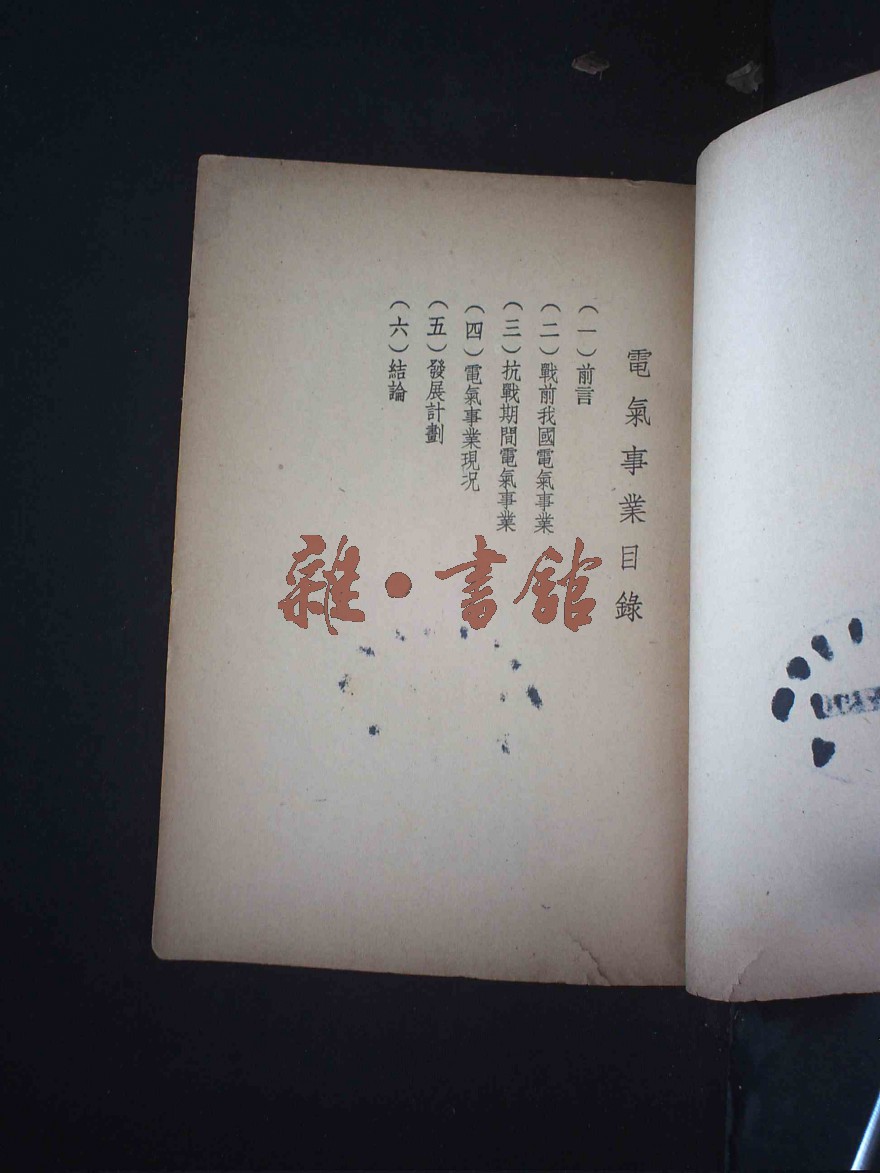 電氣事業目錄
（一）前言
（二）戰前我國電氣事業
（三）抗戰期間電氣事業
（四）電氣事業現況
（五）發展計劃
（六）結論
雜·書館